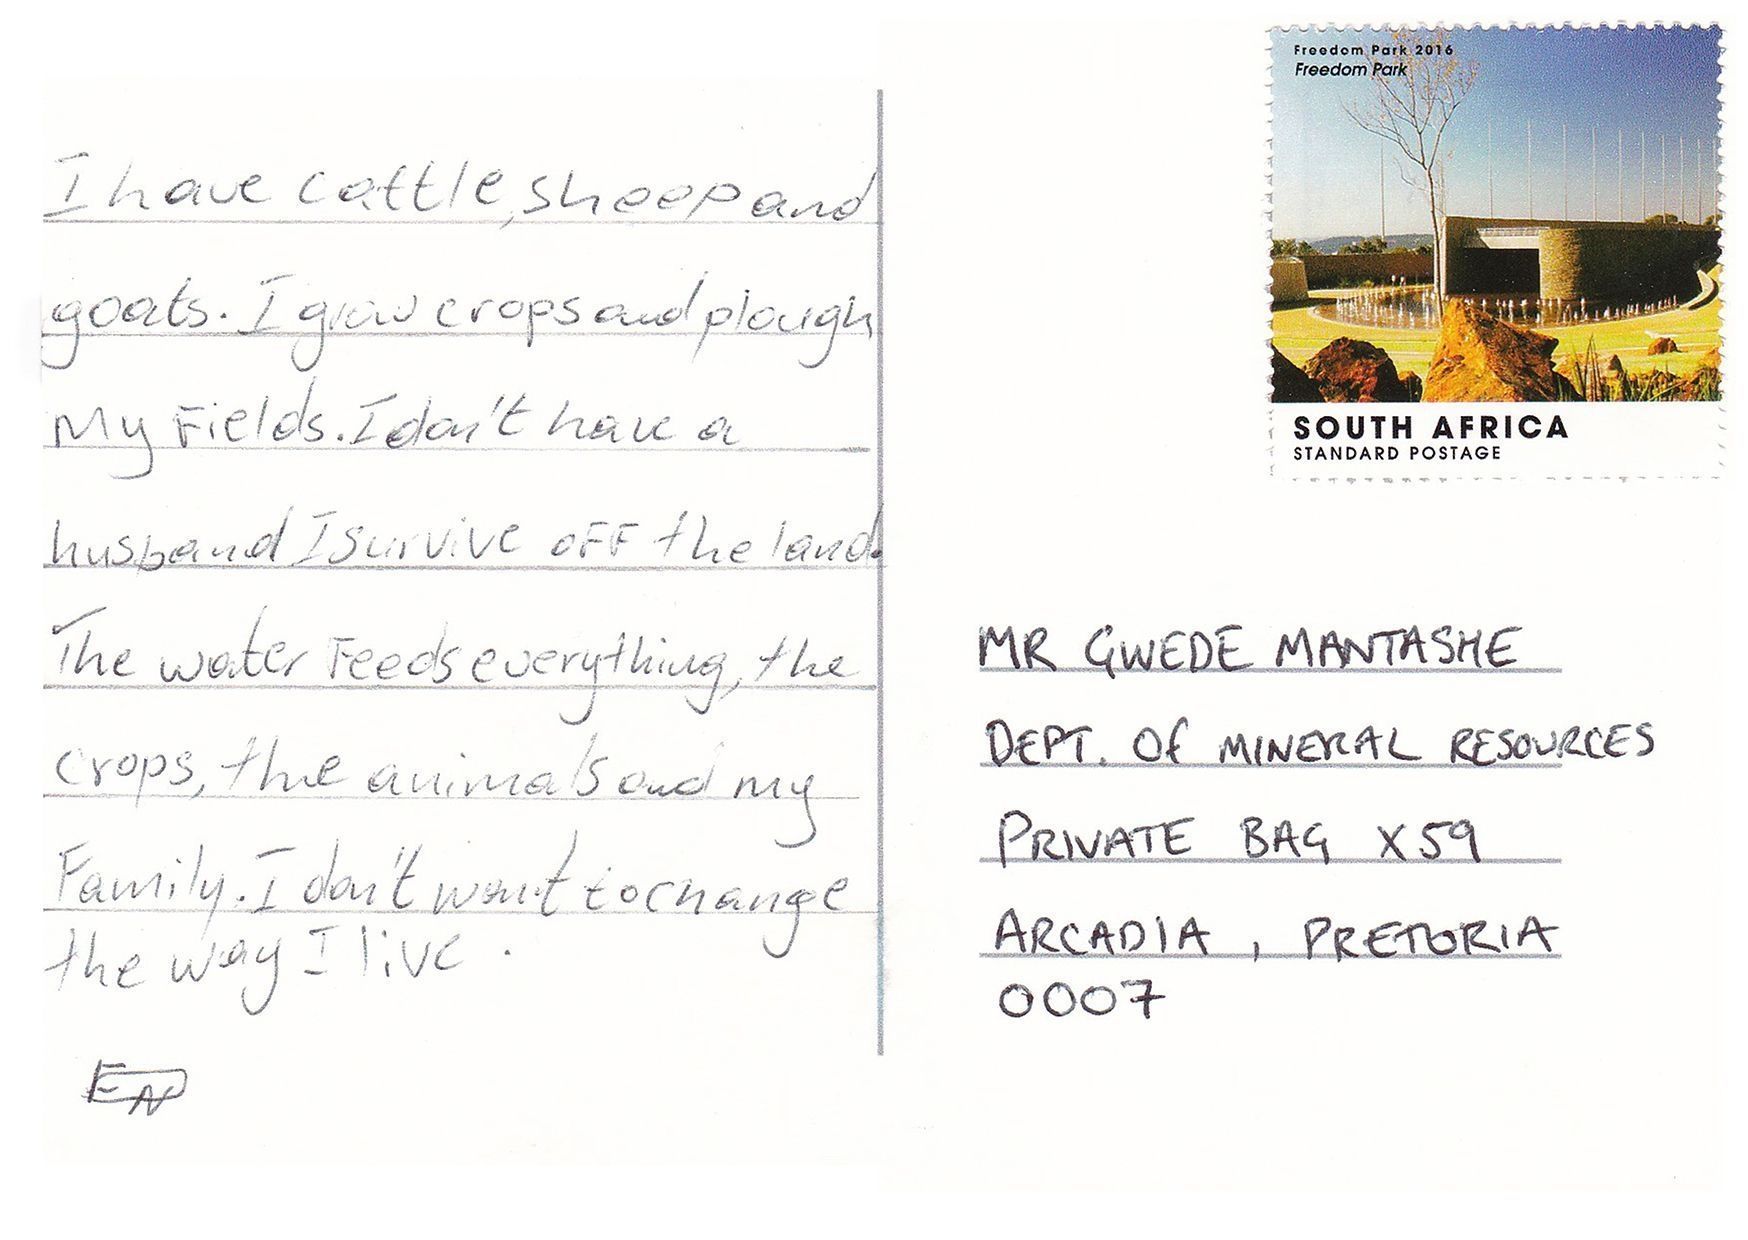 I have cattle, sheep and
goats. I grow crops and plough
My Fields. I don't have a
husband I survive oFF the land.
The water Feeds everything, the
crops, the animals and my
Family. I don't want to change
the way I live.
EN
Freedom Park 2016
Freedom Park
SOUTH AFRICA
STANDARD POSTAGE
MR GWEDE MANTASHE
DEPT. Of MINERAL RESOURCES
PRIVATE BAG X59
ARCADIA, PRETORIA
0007